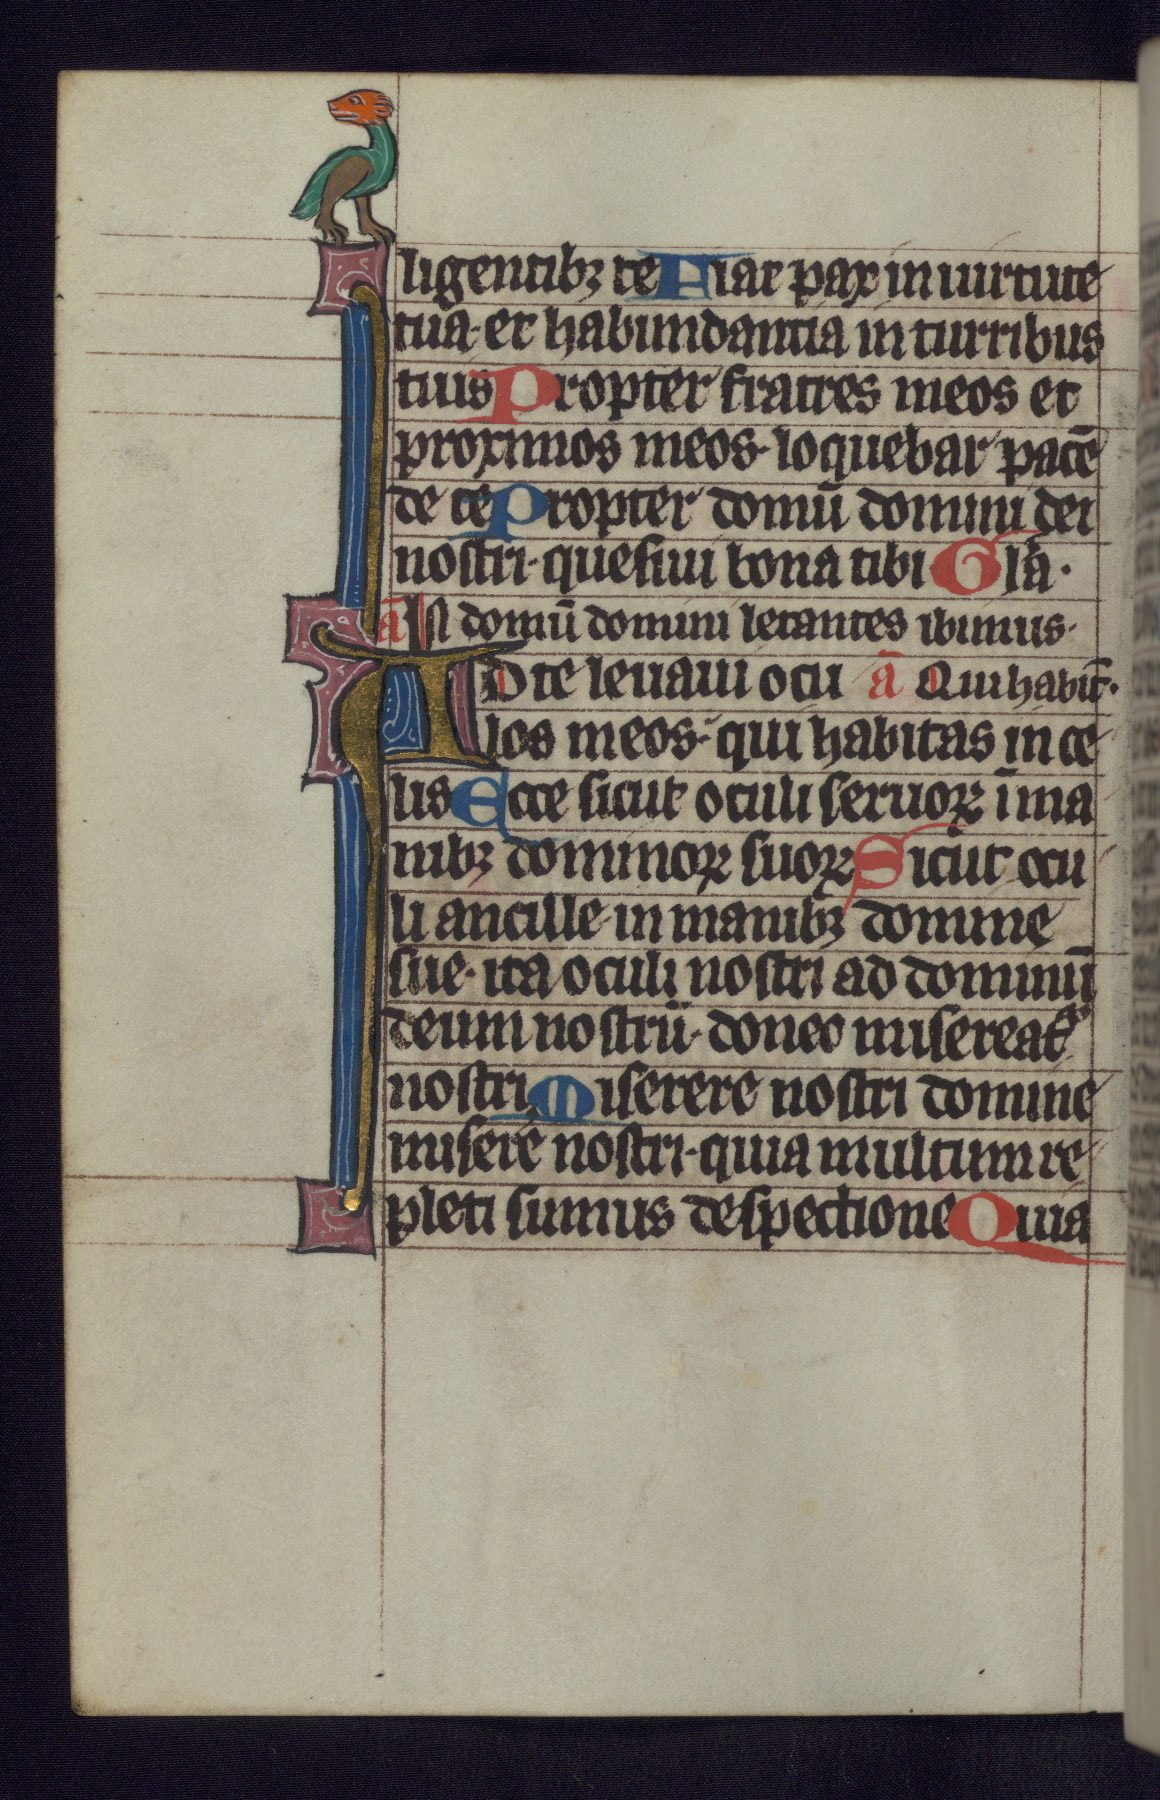 ligentibꝫ te Fiat pax in uirtute
tua· et habundantia in turribus
tuis Propter fratres meos et
proximos meos· loquebar pacē
de te Propter domū domini dei
nostri· quesiui bona tibi Glā·
ā In domū domini letantes ibimus·
AD te leuaui ocu ā Qui habit̄·
los meos· qui habitas in ce
lis Ecce sicut oculi seruoꝝ ī ma
nibꝫ dominoꝝ suoꝝ Sicut ocu
li ancille in manibꝫ domine
sue· ita oculi nostri ad dominū
deum nostrū· donec misereat᷑
nostri Miserere nostri domine
miserē nostri· quia multum re
pleti sumus despectione Quia